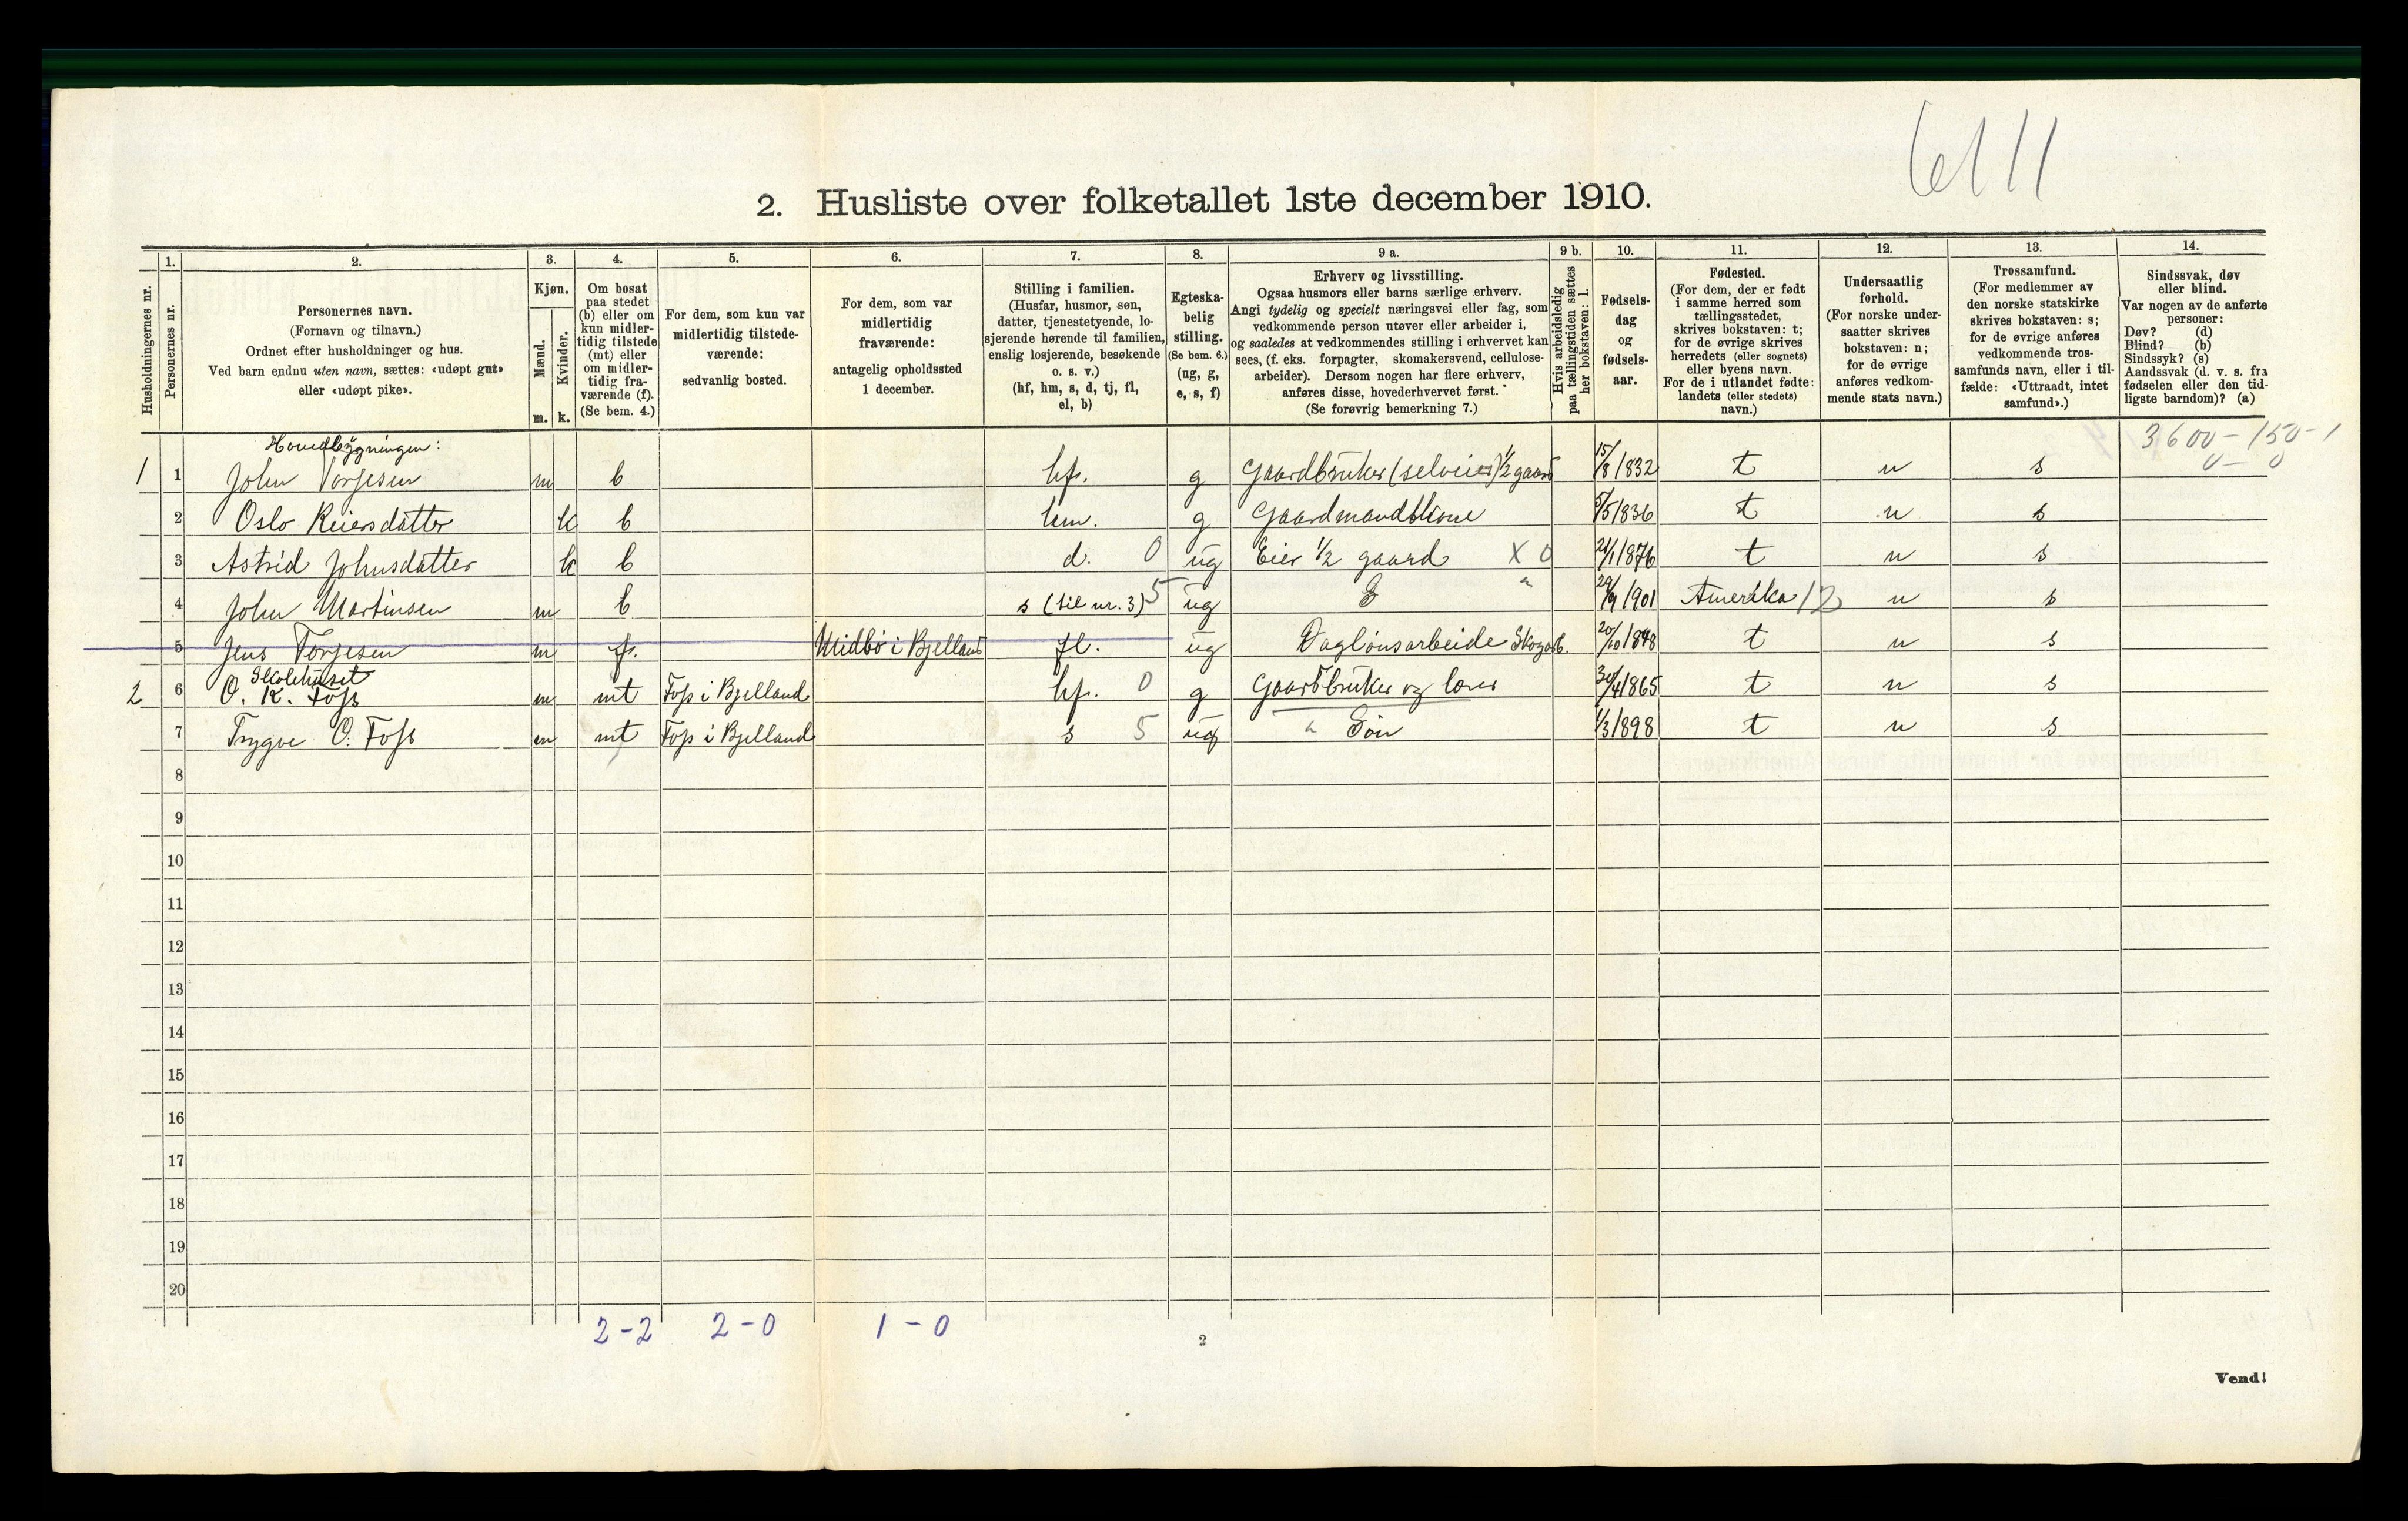 6111
2. Husliste over folketallet 1ste december 1910.
Husholdningernes nr.
1.
Personernes nr.
2.
Personernes navn.
(Fornavn og tilnavn.)
Ordnet efter husholdninger og hus.
Ved barn endnu uten navn, sættes: «udøpt gut»
eller «udøpt pike».
3.
Kjøn.
Mænd.
Kvinder.
m. k.
4.
Om bosat
paa stedet
(b) eller om
kun midler-
tidig tilstede
(mt) eller
om midler-
tidig fra-
værende (f).
(Se bem. 4.)
5.
For dem, som kun var
midlertidig tilstede-
værende:
sedvanlig bosted.
6.
For dem, som var
midlertidig
fraværende:
antagelig opholdssted
1 december.
7.
Stilling i familien.
(Husfar, husmor, søn,
datter, tjenestetyende, lo-
sjerende hørende til familien,
enslig losjerende, besøkende
o. s. v.)
(hf, hm, s, d, tj, fl,
el, b)
8.
Egteska-
belig
stilling.
(Se bem. 6.)
(ug, g,
e, s, f)
9 a.
Erhverv og livsstilling.
Ogsaa husmors eller barns særlige erhverv.
Angi tydelig og specielt næringsvei eller fag, som
vedkommende person utøver eller arbeider i,
og saaledes at vedkommendes stilling i erhvervet kan
sees, (f. eks. forpagter, skomakersvend, cellulose-
arbeider). Dersom nogen har flere erhverv,
anføres disse, hovederhvervet først.
(Se forøvrig bemerkning 7.)
9 b.
Hvis arbeidsledig
paa tællingstiden sættes
her bokstaven: l.
10.
Fødsels-
dag
og
fødsels-
aar.
11.
Fødested.
(For dem, der er født
i samme herred som
tællingsstedet,
skrives bokstaven: t;
for de øvrige skrives
herredets (eller sognets)
eller byens navn.
For de i utlandet fødte:
landets (eller stedets)
navn.)
12.
Undersaatlig
forhold.
(For norske under-
saatter skrives
bokstaven: n;
for de øvrige
anføres vedkom-
mende stats navn.)
13.
Trossamfund.
(For medlemmer av
den norske statskirke
skrives bokstaven: s;
for de øvrige anføres
vedkommende tros-
samfunds navn, eller i til-
fælde: «Uttraadt, intet
samfund».)
14.
Sindssvak, døv
eller blind.
Var nogen av de anførte
personer:
Døv? (d)
Blind? (b)
Sindssyk? (s)
Aandssvak (d. v. s. fra
fødselen eller den tid-
ligste barndom)? (a)
3600 - 150 - 1
0 - 0
Hovedbygningen:
1 1 John Torjesen m b hf. g Gaardbruker (selveier) 1/2 gaard 15/8 1832 t n s
2 Oslo Reiersdatter k b hm. g Gaardmandskone 5/5 1836 t n s
3 Astrid Johnsdatter k b d. 0 ug Eier 1/2 gaard X 0 21/1 1876 t n s
4 John Martinsen m b s (til nr. 3) 5 ug S 29/9 1901 Amerika n s
5 Jens Torjesen m f. Midbö i Bjelland fl. ug Daglønsarbeide Skogarb. 20/10 1848 t n s
Skolehuset
2 6 O. K. Foss m mt Foss i Bjelland hf. 0 g Gaardbruker og lærer 30/4 1865 t n s
7 Trygve O. Foss m mt Foss i Bjelland s 5 ug Søn 1/3 1898 t n s
8
9
10
11
12
13
14
15
16
17
18
19
20
2-2 2-0 1-0
2
Vend!